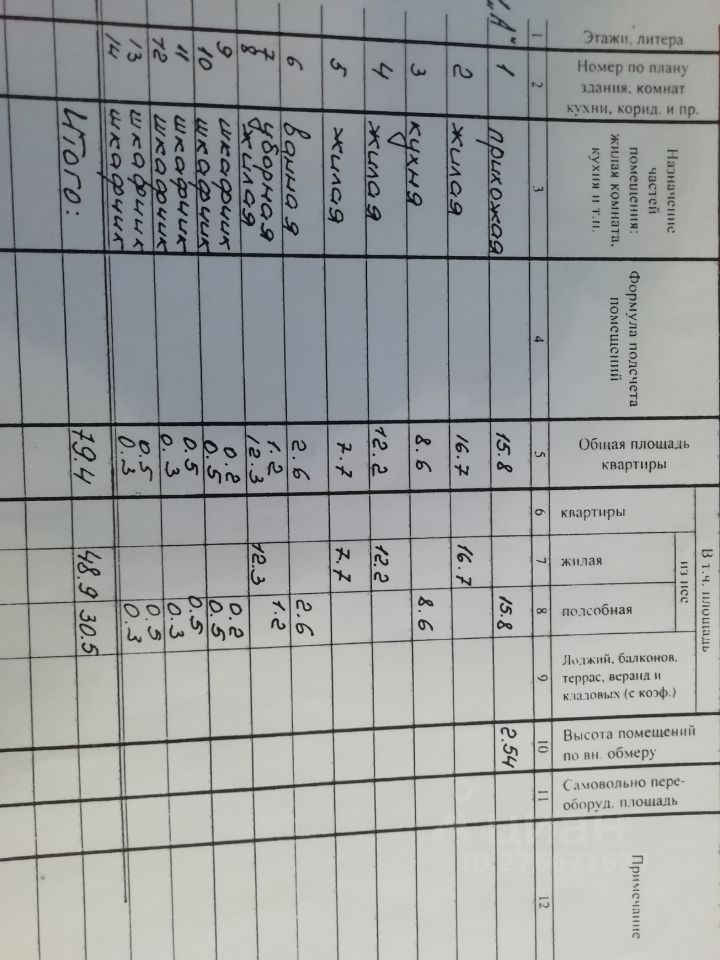 Этажи, литера
Номер по плану
здания, комнат
кухни, корид. и пр.
Назначение
частей
помещения:
жилая комната,
кухня и т.п.
Формула подсчета
помещений
Общая площадь
квартиры
В т.ч. площадь
квартиры
из нее
жилая
подсобная
Лоджий, балконов,
террас, веранд и
кладовых (с коэф.)
Высота помещений
по вн. обмеру
Самовольно пере-
оборуд. площадь
Примечание
1 2 3 4 5 6 7 8 9 10 11 12
"А" 1 прихожая 15.8 15.8 2.54
2 жилая 16.7 16.7
3 кухня 8.6 8.6
4 жилая 12.2 12.2
5 жилая 7.7 7.7
6 ванная 2.6 2.6
7 уборная 1.2 1.2
8 жилая 12.3 12.3
9 шкафчик 0.2 0.2
10 шкафчик 0.5 0.5
11 шкафчик 0.5 0.5
12 шкафчик 0.3 0.3
13 шкафчик 0.5 0.5
14 шкафчик 0.3 0.3
Итого: 79.4 48.9 30.5
циан